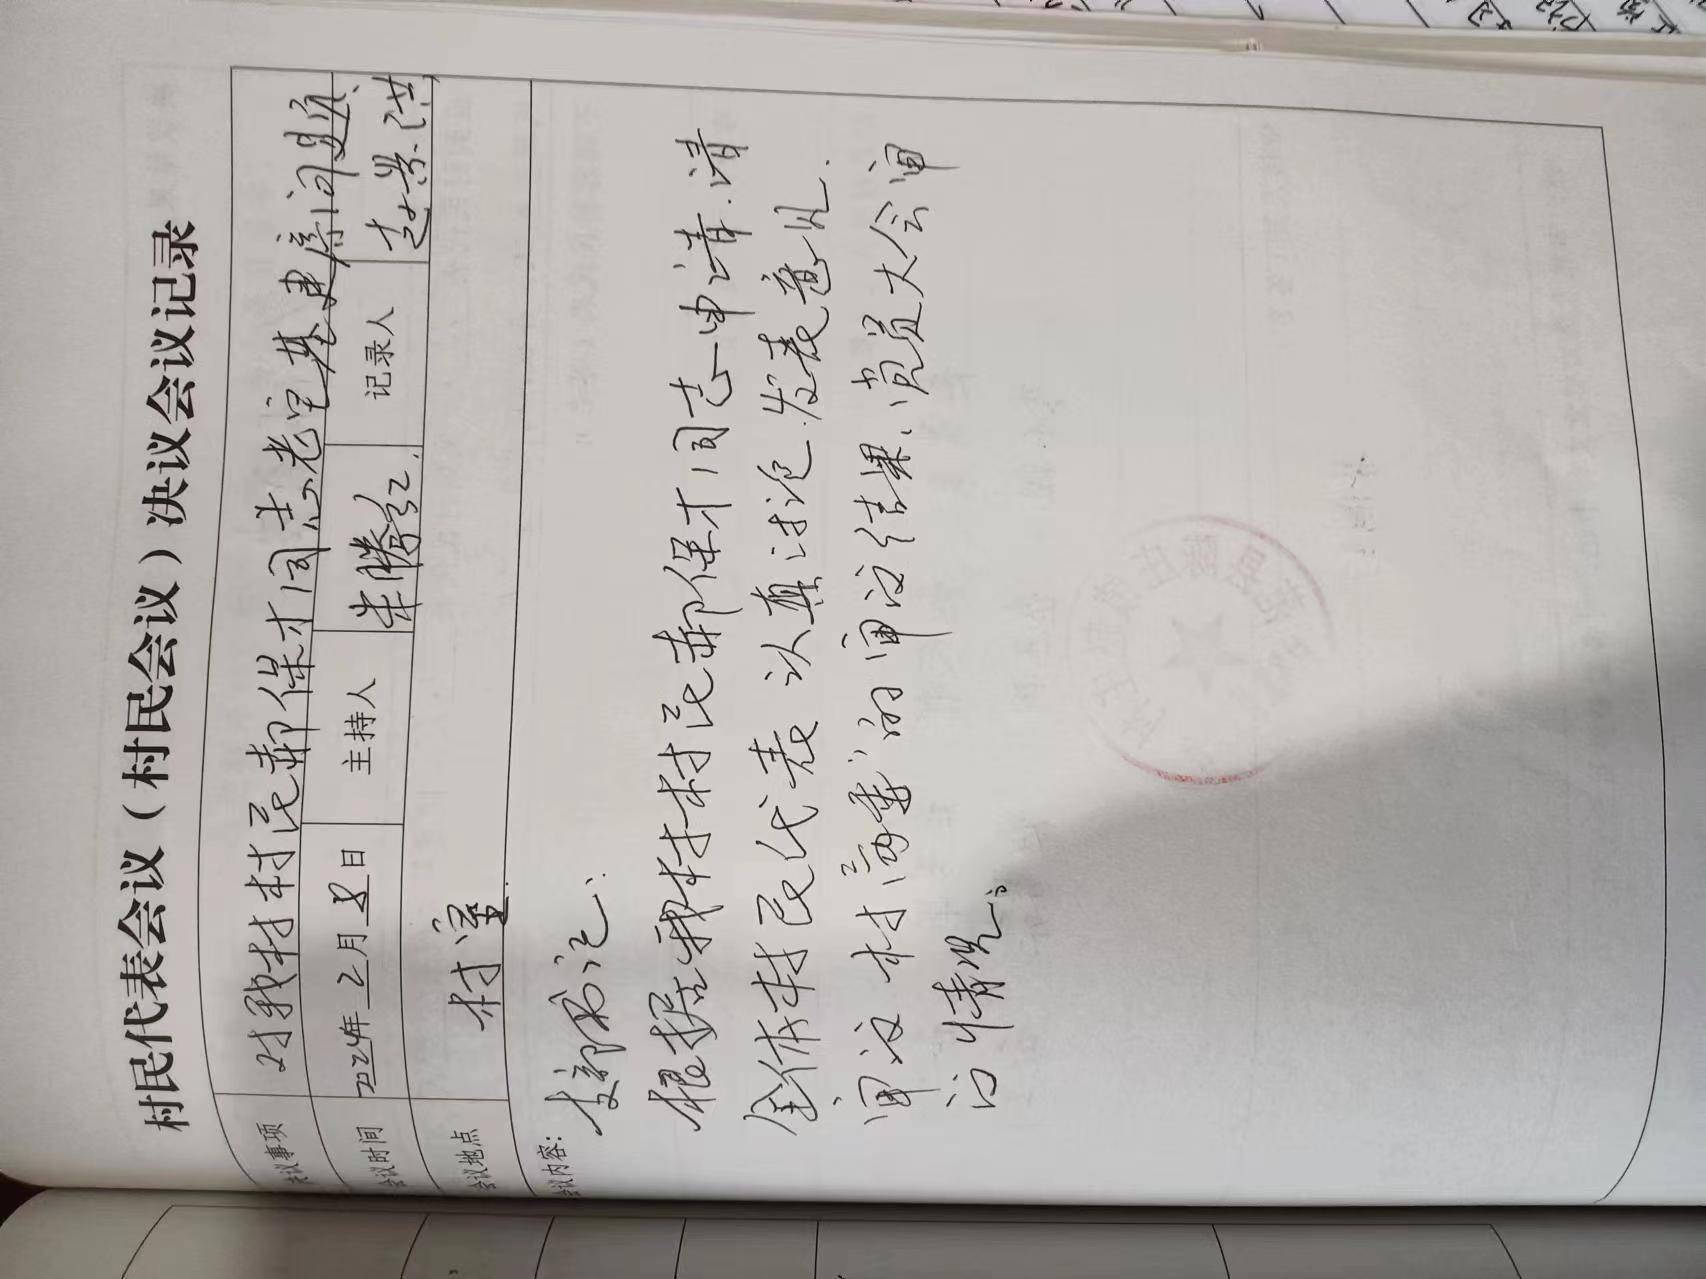 村民代表会议（村民会议）决议会议记录
决议事项 对我村村民郝保才同志老宅基建房问题
会议时间 2024年2月8日 主持人 朱腾红 记录人 赵景洪
会议地点 村室
会议内容：
支部书记：
根据我村村民郝保才同志申请.请
全体村民代表认真讨论.发表意见.
审议村两委的审议结果、党员大会审
议情况。